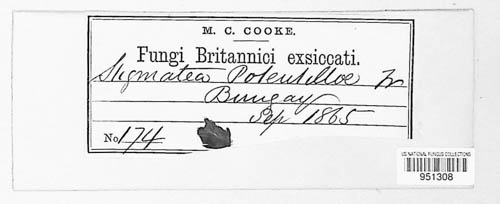 M. C. COOKE.
Fungi Britannici exsiccati.
Stigmatea Potentilloe Fr
Bungay
Sep 1865
No 174
US NATIONAL FUNGUS COLLECTIONS
951308